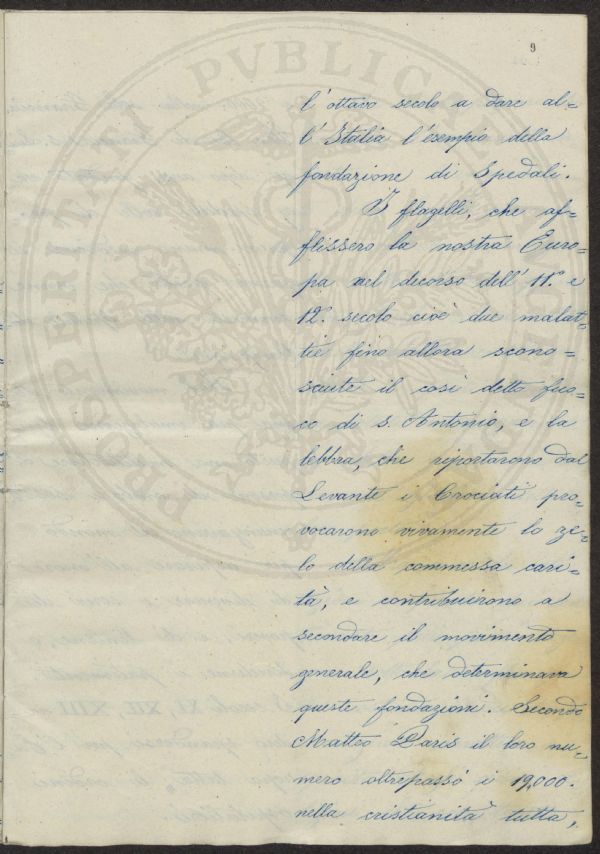 9
l'ottavo secolo a dare al=
l'Italia l'esempio della
fondazione di Spedali.
I flagelli, che af=
flissero la nostra Euro=
pa nel decorso dell' 11.° e
12.° secolo cioè due malat=
tie fino allora scono=
sciute il così detto fuo=
co di S. Antonio, e la
lebbra, che riportarono dal
Levante i Crociati pro=
vocarono vivamente lo ze=
lo della commessa cari=
tà, e contribuirono a
secondare il movimento
generale, che determinava
queste fondazioni. Secondo
Matteo Paris il loro nu=
mero oltrepassò i 19,000.
nella cristianità tutta,
PROSPERITATI PVBLICAE